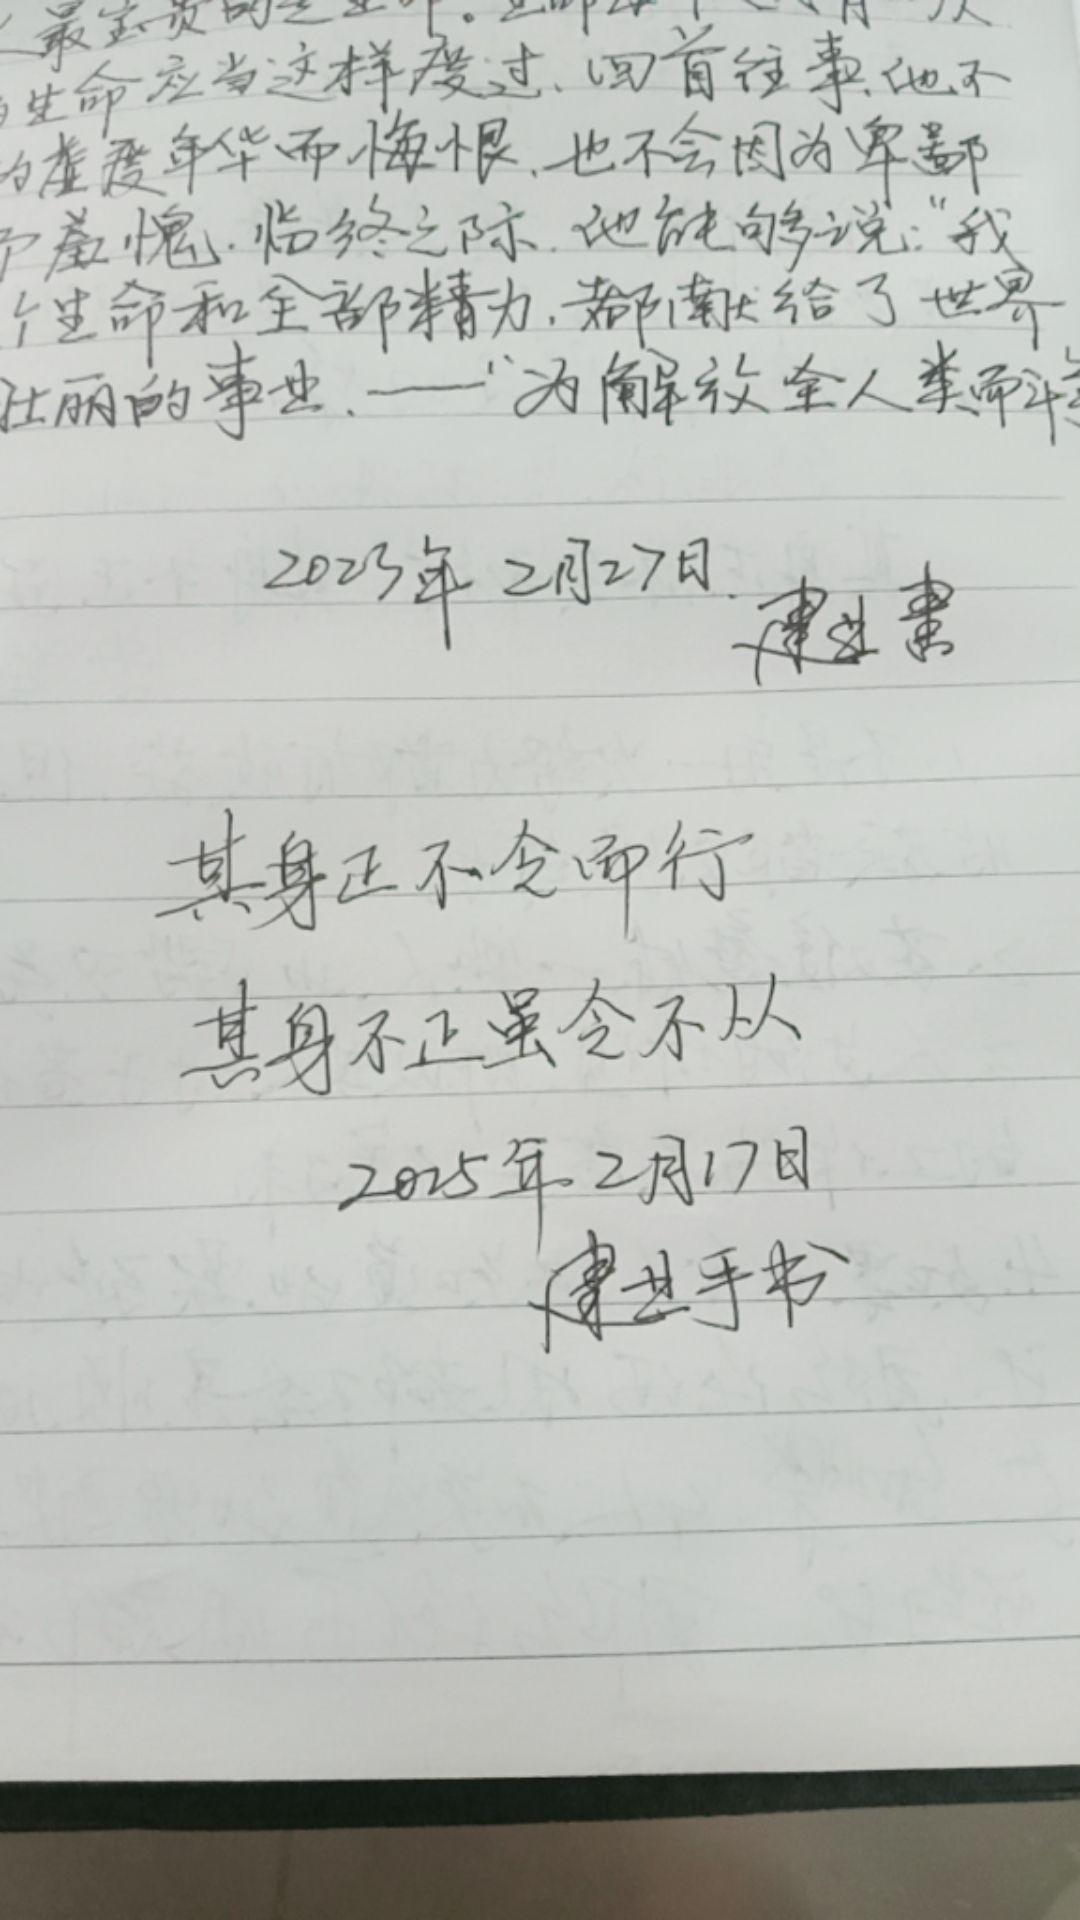 最宝贵的是生命。生命每个人只有一次
生命应当这样度过.回首往事,他不
的虚度年华而悔恨.也不会因为卑鄙
羞愧.临终之际.他能够说:"我
个生命和全部精力.都献给了世界
壮丽的事业.——"为解放全人类而斗
2023年2月27日.
建业书
其身正不令而行
其身不正虽令不从
2025年2月17日
建业手书